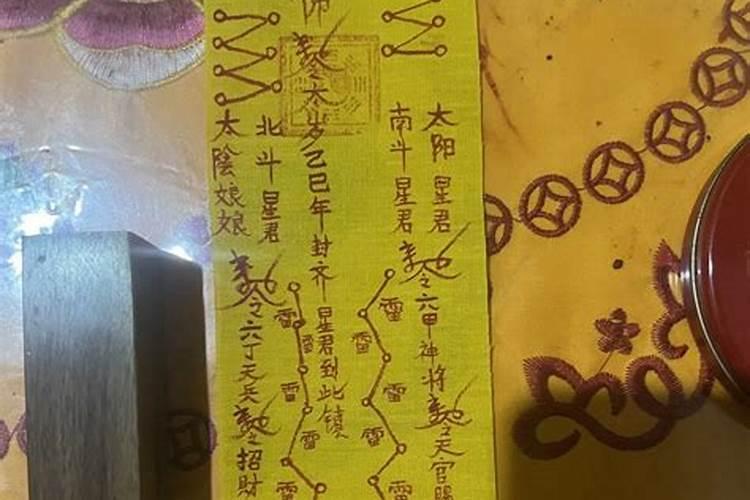 太阳星君
南斗星君
敕令六甲神将敕令天官賜
雷
雷
雷
雷
雷
師敕令太岁己巳年封齐星君到此镇
北斗星君
太陰娘娘
雷
雷
雷
雷
雷
敕令六丁天兵敕令招財